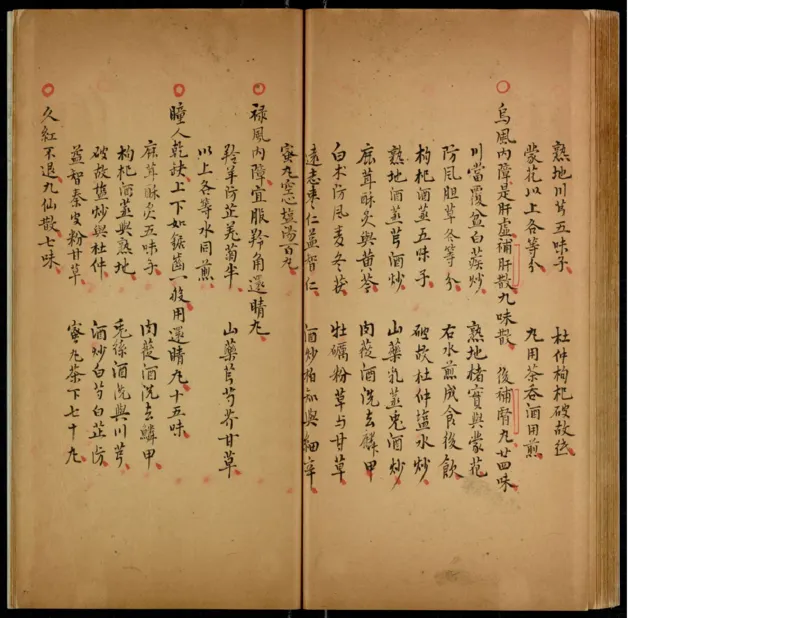 熟地川芎五味子 杜仲枸杞破故紙
蒙花以上各等分 九用茶吞酒用煎
烏風內障是肝虛補肝散九味散 後補腎九廿四味
川當覆盆白蒺炒 熟地楮實與蒙花
防風胆草各等分 右水煎成食後飲
枸杞酒蒸五味子 破故杜仲塩水炒
熟地酒蒸芎酒炒 山藥乳蒸兎酒炒
鹿茸酥炙與黃芩 肉蓯酒洗去鱗甲
白朮防風麦冬茯 牡礪粉草与甘草
遠志棗仁益智仁 酒炒柏知與細辛
蜜九空心塩湯百九
禄風內障宜服羚角還睛九
羚羊防芷羌菊半 山藥芎芍芥甘草
以上各等水同煎
瞳人乾缺上下如鋸齒一般用還睛九十五味
鹿茸酥炙五味子 肉蓯酒洗去鱗甲
枸杞酒蒸與熟地 兎絲酒洗與川芎
破故塩炒與杜仲 酒炒白芍白芷防
益智秦皮粉甘草 蜜九茶下七十九
久紅不退九仙散七味